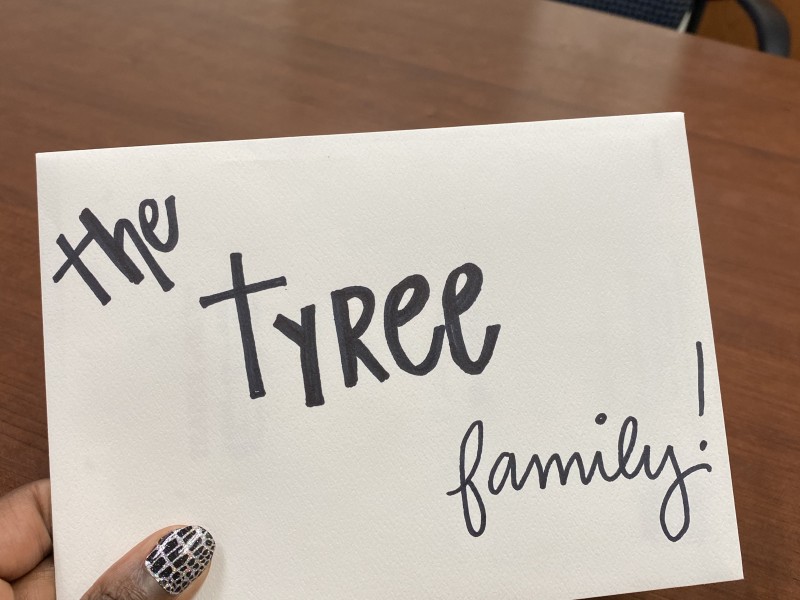 the
TYREE
family!